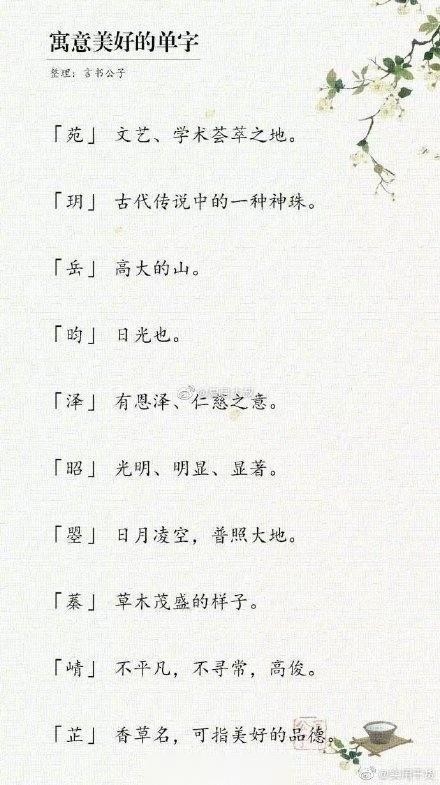 寓意美好的单字
整理：言书公子
「苑」 文艺、学术荟萃之地。
「玥」 古代传说中的一种神珠。
「岳」 高大的山。
「昀」 日光也。
「泽」 有恩泽、仁慈之意。
「昭」 光明、明显、显著。
「曌」 日月凌空，普照大地。
「蓁」 草木茂盛的样子。
「崝」 不平凡，不寻常，高俊。
「芷」 香草名，可指美好的品德。